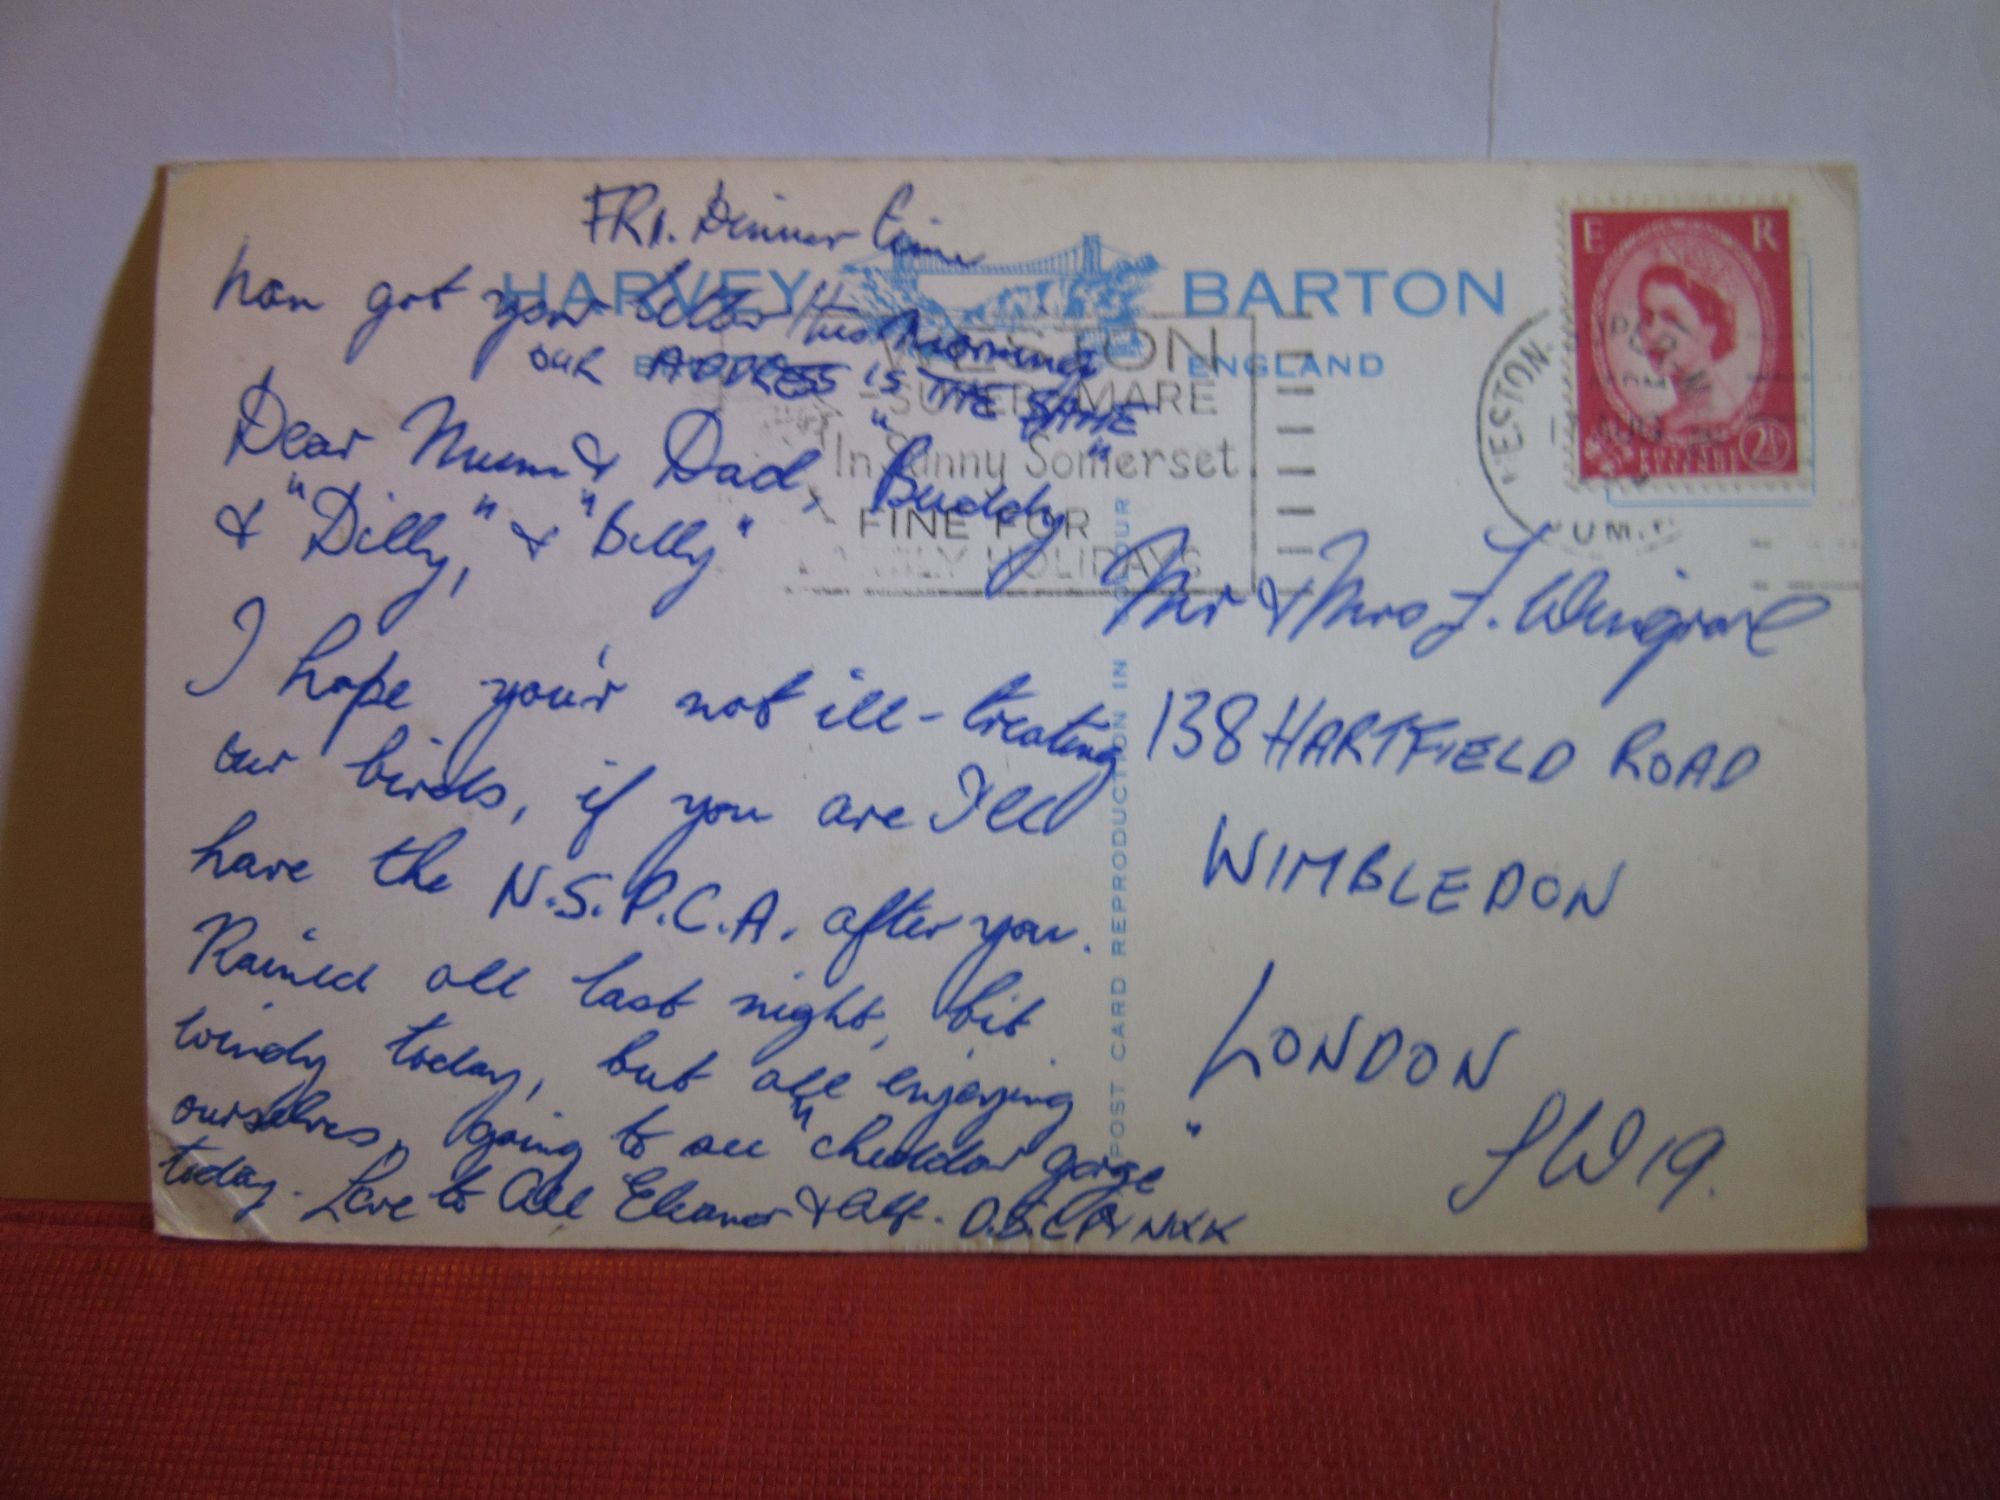 FRI. Dinner time
Nan got your letter this morning
OUR ADDRESS IS THE SAME
HARVEY BARTON
ENGLAND
Dear Mum & Dad, "Buddy"
& "Dilly," & "Billy"
I hope you'r not ill-treating
our birds, if you are I'll
have the N.S.P.C.A. after you.
Rained all last night, bit
windy today, but all enjoying
ourselves, going to see "cheddar gorge"
today. Love to All Eleanor & Alf.
POST CARD REPRODUCTION IN COLOUR
E R
2½
WESTON
-SUPER-MARE
In Sunny Somerset
FINE FOR
FAMILY HOLIDAYS
WESTON
Mr & Mrs F. Wingrove
138 HARTFIELD ROAD
WIMBLEDON
LONDON
SW19.